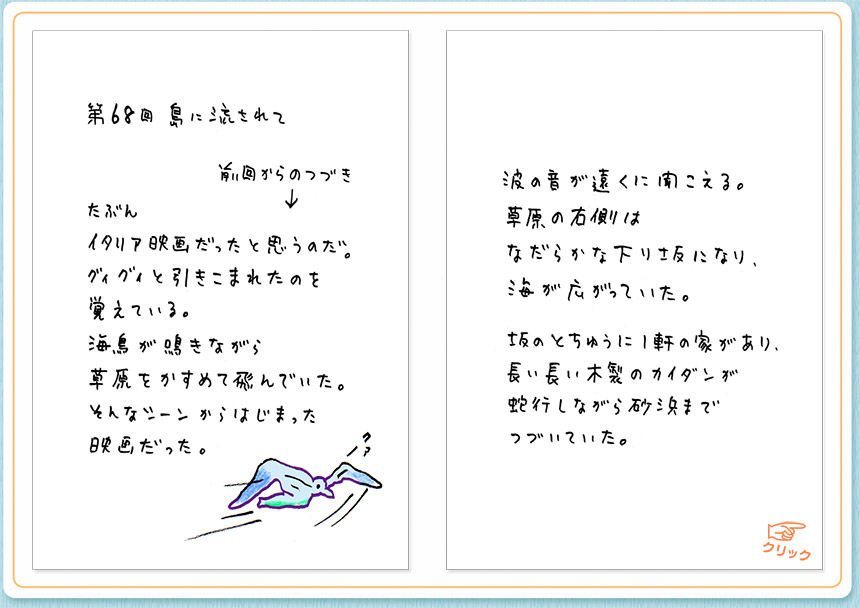 第68回 島に流されて
前回からのつづき
↓
たぶん
イタリア映画だったと思うのだ。
グィグィと引きこまれたのを
覚えている。
海鳥が鳴きながら
草原をかすめて飛んでいた。
そんなシーンからはじまった
映画だった。
クァ
波の音が遠くに聞こえる。
草原の右側は
なだらかな下り坂になり、
海が広がっていた。
坂のとちゅうに1軒の家があり、
長い長い木製のカイダンが
蛇行しながら砂浜まで
つづいていた。
クリック